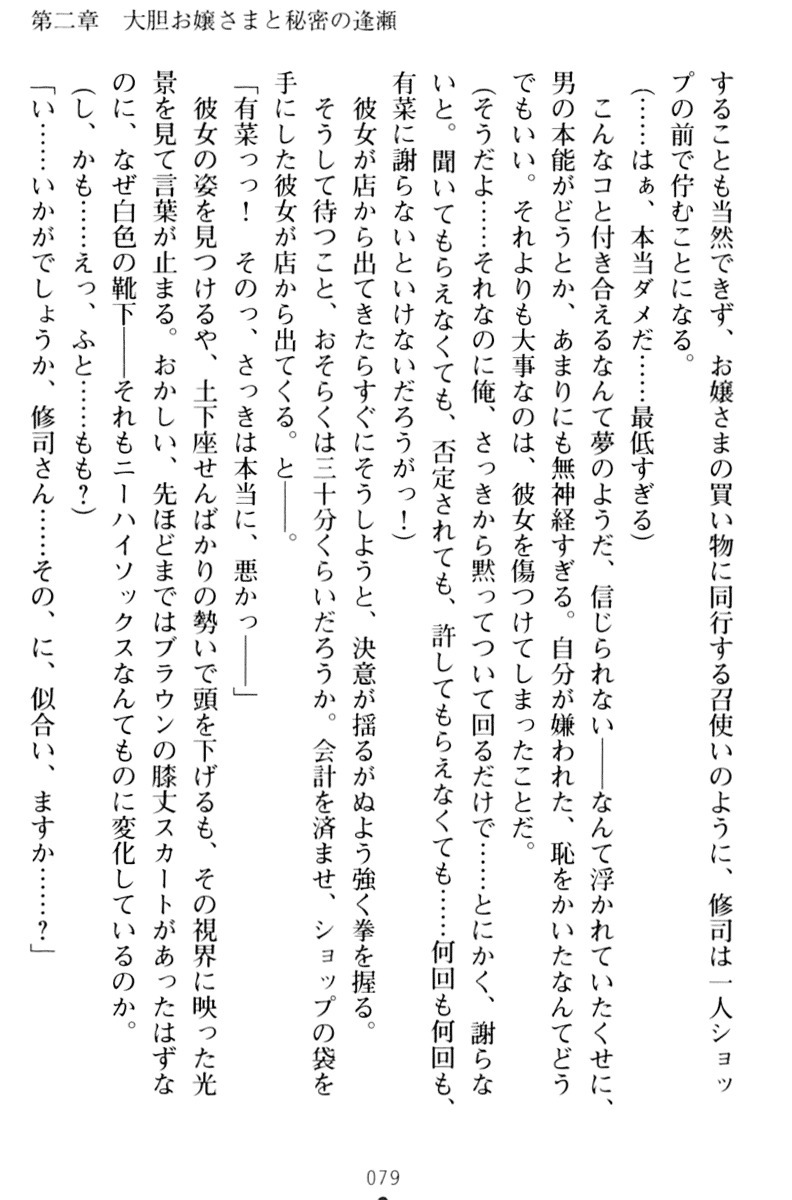 第二章　大胆お嬢さまと秘密の逢瀬
することも当然できず、お嬢さまの買い物に同行する召使いのように、修司は一人ショッ
プの前で佇むことになる。
(……はぁ、本当ダメだ……最低すぎる)
　こんなコと付き合えるなんて夢のようだ、信じられない――なんて浮かれていたくせに、
男の本能がどうとか、あまりにも無神経すぎる。自分が嫌われた、恥をかいたなんてどう
でもいい。それよりも大事なのは、彼女を傷つけてしまったことだ。
(そうだよ……それなのに俺、さっきから黙ってついて回るだけで……とにかく、謝らな
いと。聞いてもらえなくても、否定されても、許してもらえなくても……何回も何回も、
有菜に謝らないといけないだろうがっ！)
　彼女が店から出てきたらすぐにそうしようと、決意が揺るがぬよう強く拳を握る。
　そうして待つこと、おそらくは三十分くらいだろうか。会計を済ませ、ショップの袋を
手にした彼女が店から出てくる。と――。
「有菜っっ！　そのっ、さっきは本当に、悪かっ――」
　彼女の姿を見つけるや、土下座せんばかりの勢いで頭を下げるも、その視界に映った光
景を見て言葉が止まる。おかしい、先ほどまではブラウンの膝丈スカートがあったはずな
のに、なぜ白色の靴下――それもニーハイソックスなんてものに変化しているのか。
(し、かも……えっ、ふと……もも？)
「い……いかがでしょうか、修司さん……その、に、似合い、ますか……？」
079